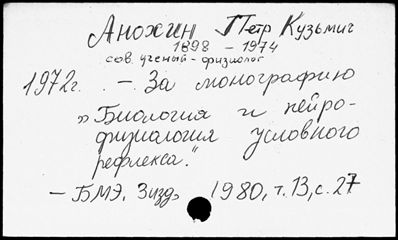 Анохин Петр Кузьмич
1898 - 1974
сов. ученый - физиолог
1972г. - За монографию
"Биология и нейро-
физиология условного
рефлекса."
- БМЭ, 3изд, 1980, т.13, с.27